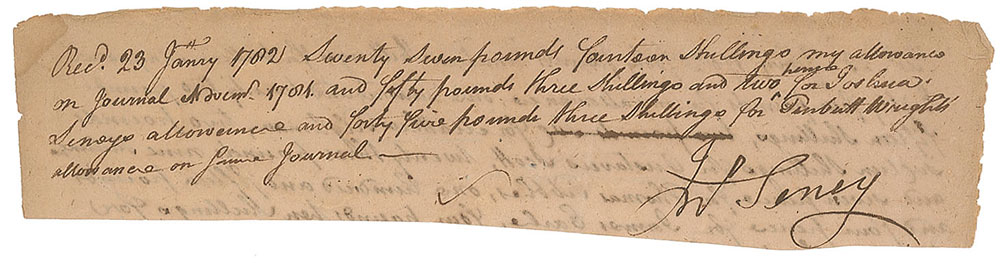 Recd. 23 Janry 1782 Seventy Seven pounds fourteen Shillings my allowance
on Journal Novemr. 1781. and fifty pounds three Shillings and two pence for Joshua
Seneys allowance and forty five pounds three Shillings for Turbutt Wrights
allowance on same Journal.
Jno Seney